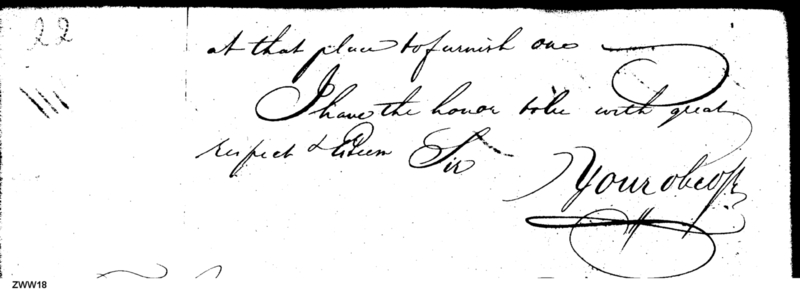 22
at that place to furnish one
I have the honor to be with great
respect & Esteem Sir
Your
ZWW18